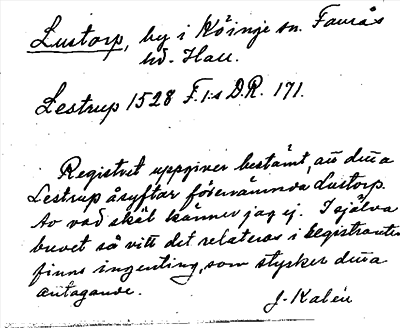 Lustorp, by i Köinge sn. Faurås
hd. Hall.
Lestrup 1528 F.I:s D.R. 171.
Registret uppgiver bestämt, att detta
Lestrup åsyftar förenämnda Lustorp.
Av vad skäl känner jag ej. I själva
brevet så vitt det relateras i registranten
finns ingenting, som styrker detta
antagande.
J. Kalén